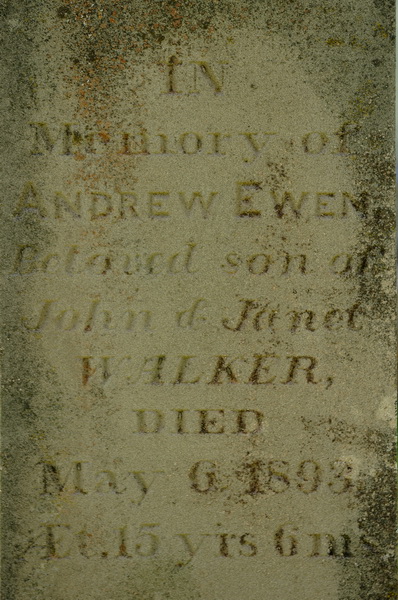 IN
Memory of
ANDREW EWEN,
beloved son of
John & Janet
WALKER,
DIED
May 6 1893
Æt. 15 yrs 6 ms